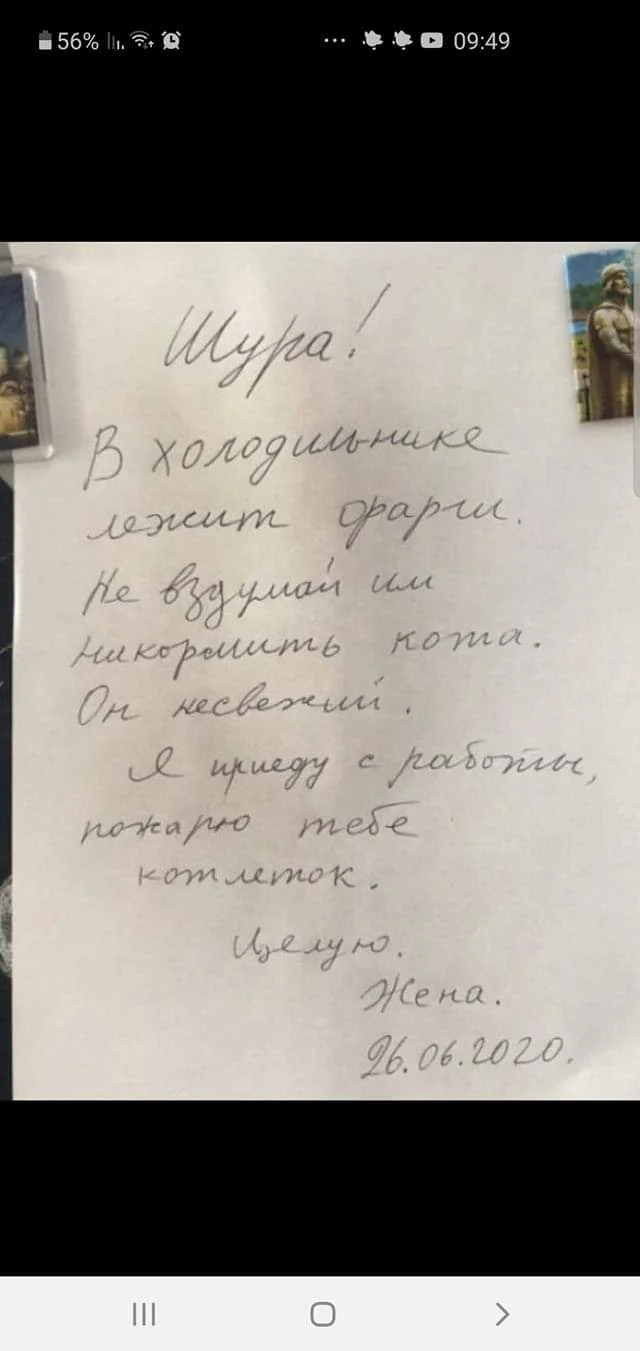 56% 09:49
Шура!
В холодильнике
лежит фарш.
Не вздумай им
накормить кота.
Он несвежий.
Я приеду с работы,
пожарю тебе
котлеток.
Целую.
Жена.
26.06.2020.